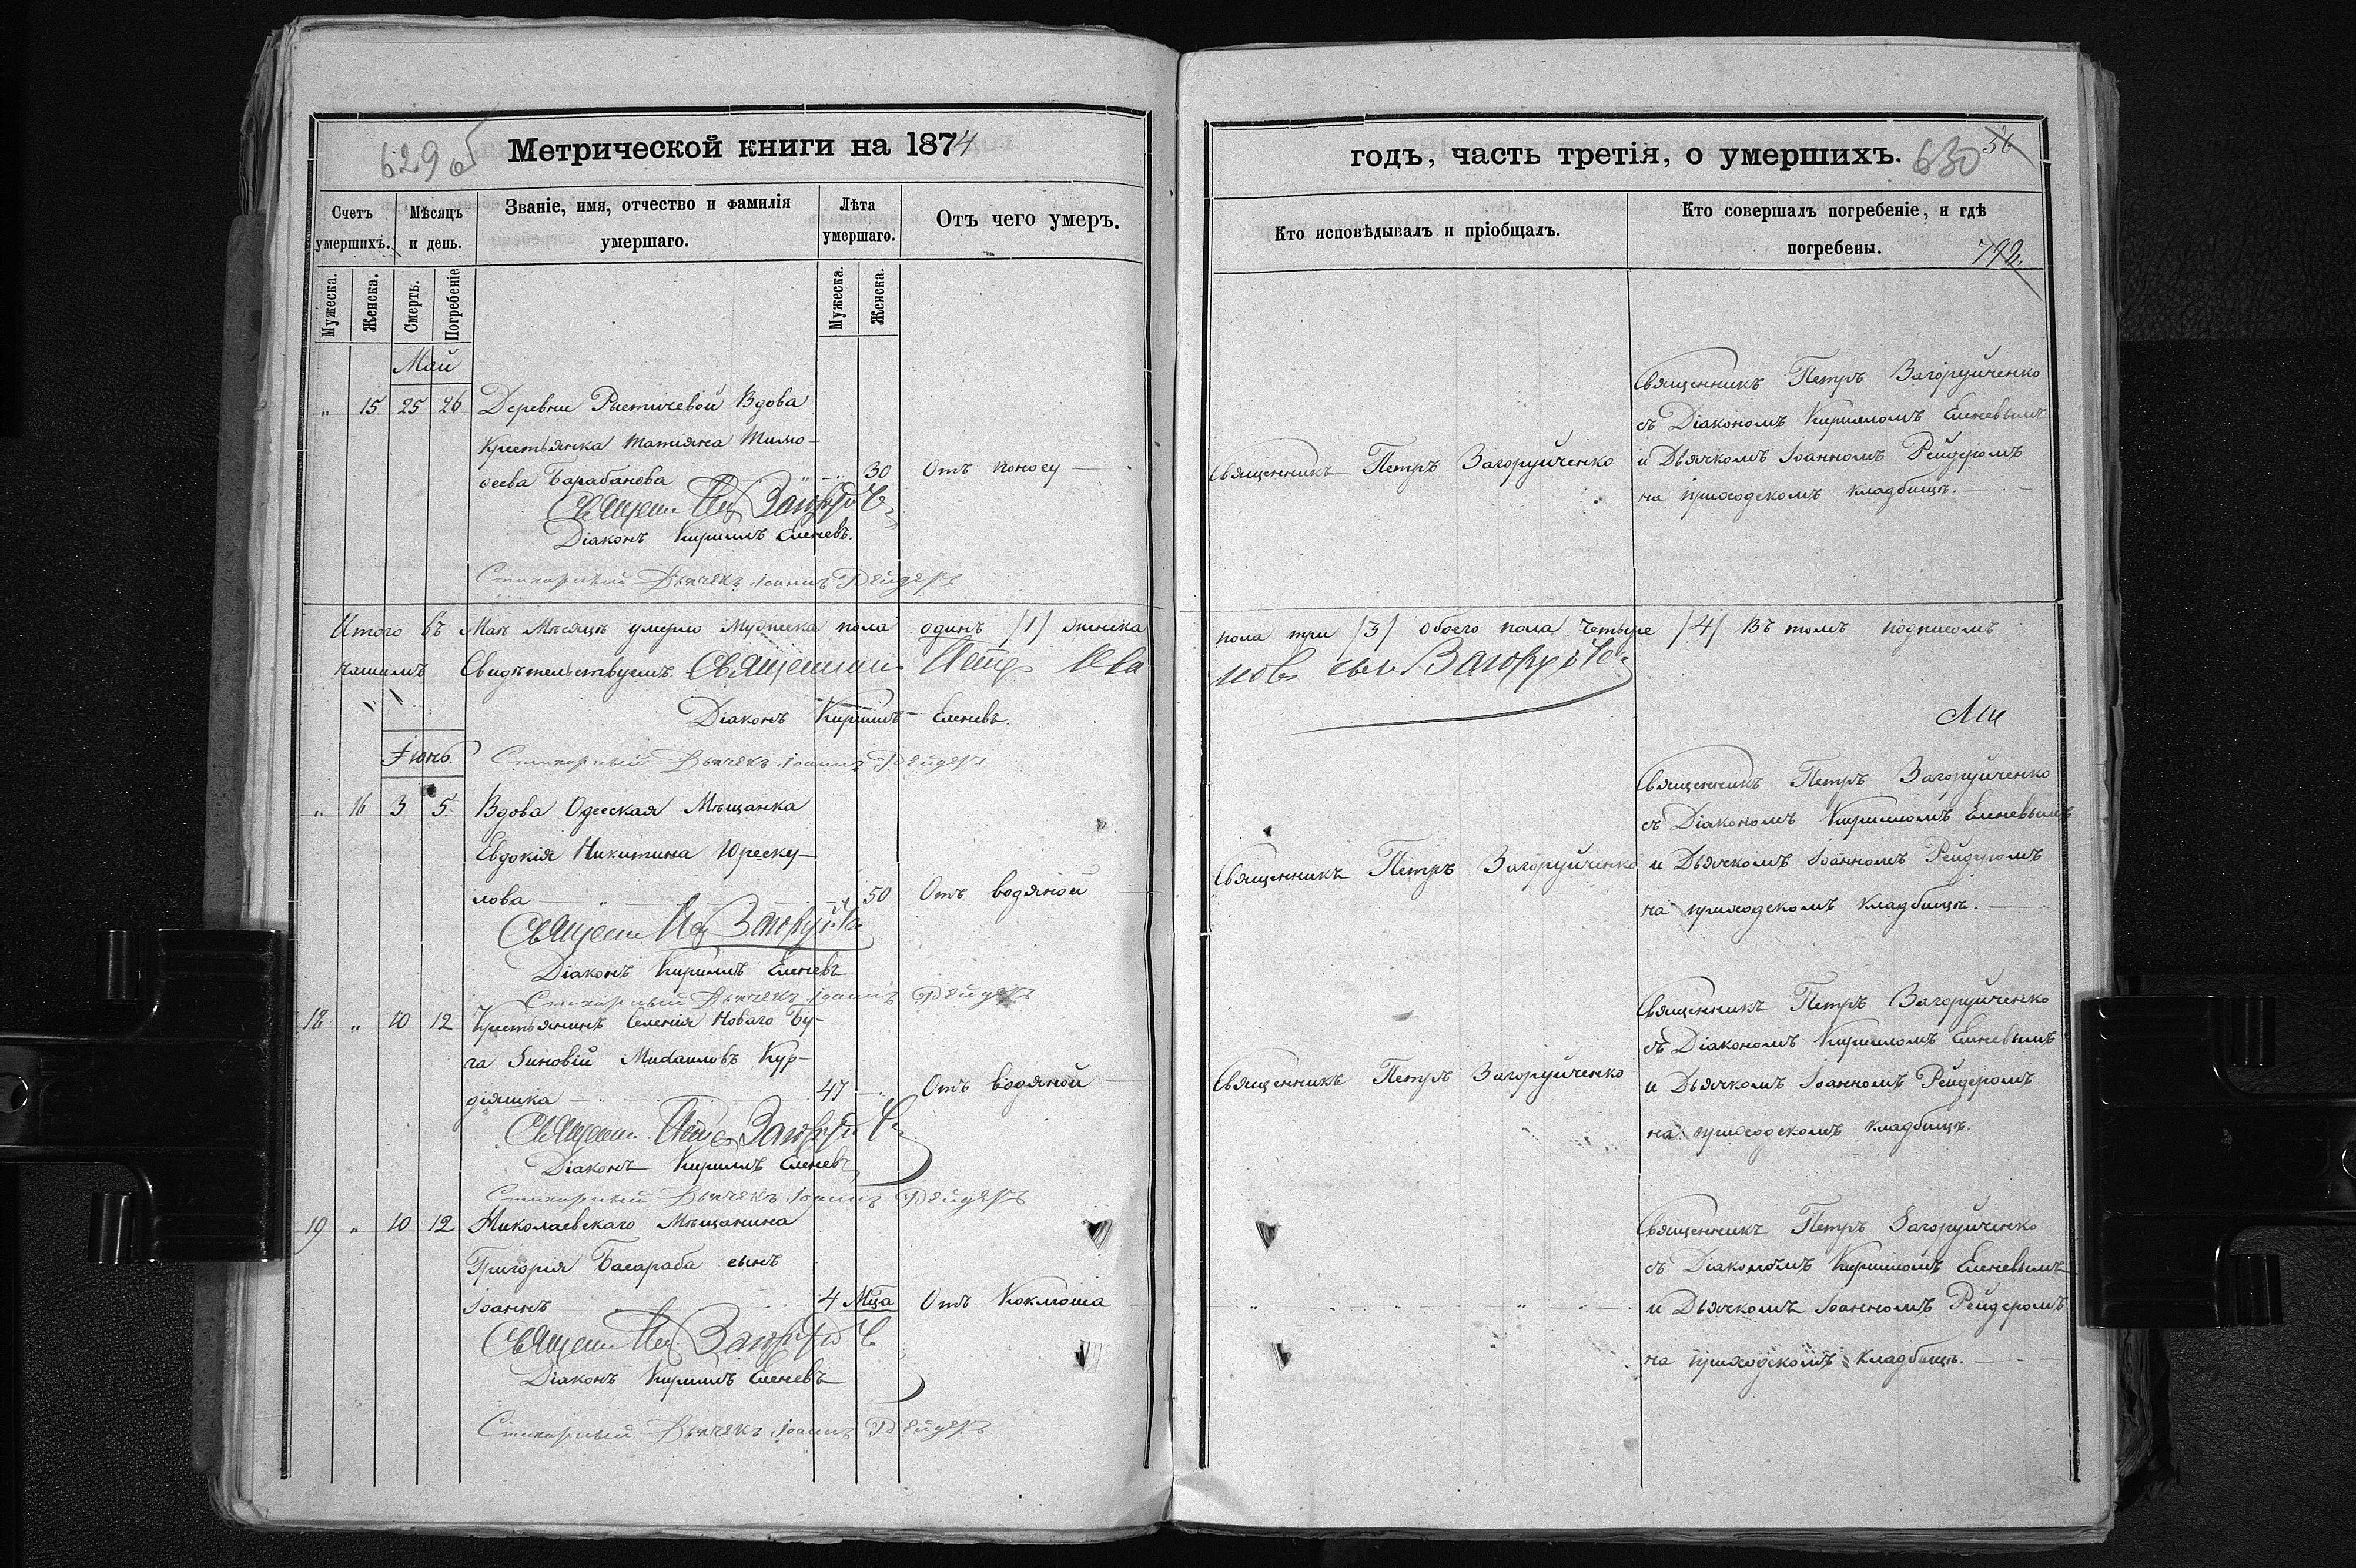 629 об
Метрической книги на 1874
Счетъ умершихъ.
Мѣсяцъ и день.
Званіе, имя, отчество и фамилія умершаго.
Лѣта умершаго.
Отъ чего умеръ.
Мужеска.
Женска.
Смерть.
Погребеніе
Мужеска.
Женска.
Май
„ 15 25 26 Деревни Вдова
Крестьянка Татіана Тимо-
ѳеева Барабанова „ 30 Отъ поносу
Священ. Петръ Загоруйч.
Діаконъ Кириллъ Еленевъ.
Стихарный Дьячекъ Іоаннъ Рейдеръ
Итого въ Маѣ Мѣсяцѣ умерло Мужеска пола одинъ /1/ женска
нашимъ Свидѣтельствуемъ. Священник Петръ Ива
Діаконъ Кириллъ Еленевъ.
Іюнь.
Стихарный Дьячекъ Іоаннъ Рейдеръ
„ 16 3 5. Вдова Одесская Мѣщанка
Евдокія Никитина Юреску-
лова „ 50 Отъ водяной
Священ Петр Загоруйч
Діаконъ Кириллъ Еленевъ
Стихарный Дьячекъ Іоаннъ Рейдеръ
18 „ 10 12 Крестьянинъ Селенія Новаго Бу-
га Зиновій Михаиловъ Кур-
діяшка 47 Отъ водяной
Священ. Петръ Загоруйч
Діаконъ Кириллъ Еленевъ
Стихарный Дьячекъ Іоаннъ Рейдеръ
19 „ 10 12 Николаевскаго Мѣщанина
Григорія Басараба сынъ
Іоаннъ 4 Мца Отъ Коклюша
Священ Петр Загоруйч
Діаконъ Кириллъ Еленевъ
Стихарный Дьячекъ Іоаннъ Рейдеръ
годъ, часть третія, о умершихъ.
630
Кто исповѣдывалъ и пріобщалъ.
Кто совершалъ погребеніе, и гдѣ погребены.
792.
Священникъ Петръ Загоруйченко
Священникъ Петръ Загоруйченко
съ Діакономъ Кирилломъ Еленевымъ
и Дьячкомъ Іоанномъ Рейдеромъ
на приходскомъ кладбищѣ.
пола три /3/ обоего пола четыре /4/ Въ томъ подписомъ
новъ сын Загоруйч
Священникъ Петръ Загоруйченко
Священникъ Петръ Загоруйченко
съ Діакономъ Кирилломъ Еленевымъ
и Дьячкомъ Іоанномъ Рейдеромъ
на приходскомъ кладбищѣ.
Священникъ Петръ Загоруйченко
Священникъ Петръ Загоруйченко
съ Діакономъ Кирилломъ Еленевымъ
и Дьячкомъ Іоанномъ Рейдеромъ
на приходскомъ кладбищѣ.
Священникъ Петръ Загоруйченко
съ Діакономъ Кирилломъ Еленевымъ
и Дьячкомъ Іоанномъ Рейдеромъ
на приходскомъ кладбищѣ.